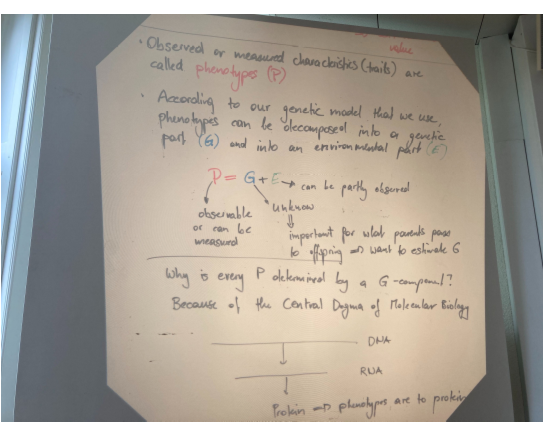 value
• Observed or measured characteristics (traits) are
called phenotypes (P)
• According to our genetic model that we use,
phenotypes can be decomposed into a genetic
part (G) and into an environmental part (E)
P = G + E → can be partly observed
observable
or can be
measured
unknown
⇓
important for what parents pass
to offspring ⇒ want to estimate G
Why is every P determined by a G-component?
Because of the Central Dogma of Molecular Biology
DNA
↓
RNA
↓
Protein ⇒ phenotypes are to protein